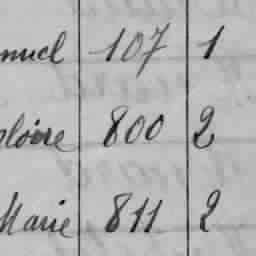 nuel 107 1
ploire 800 2
Marie 811 2